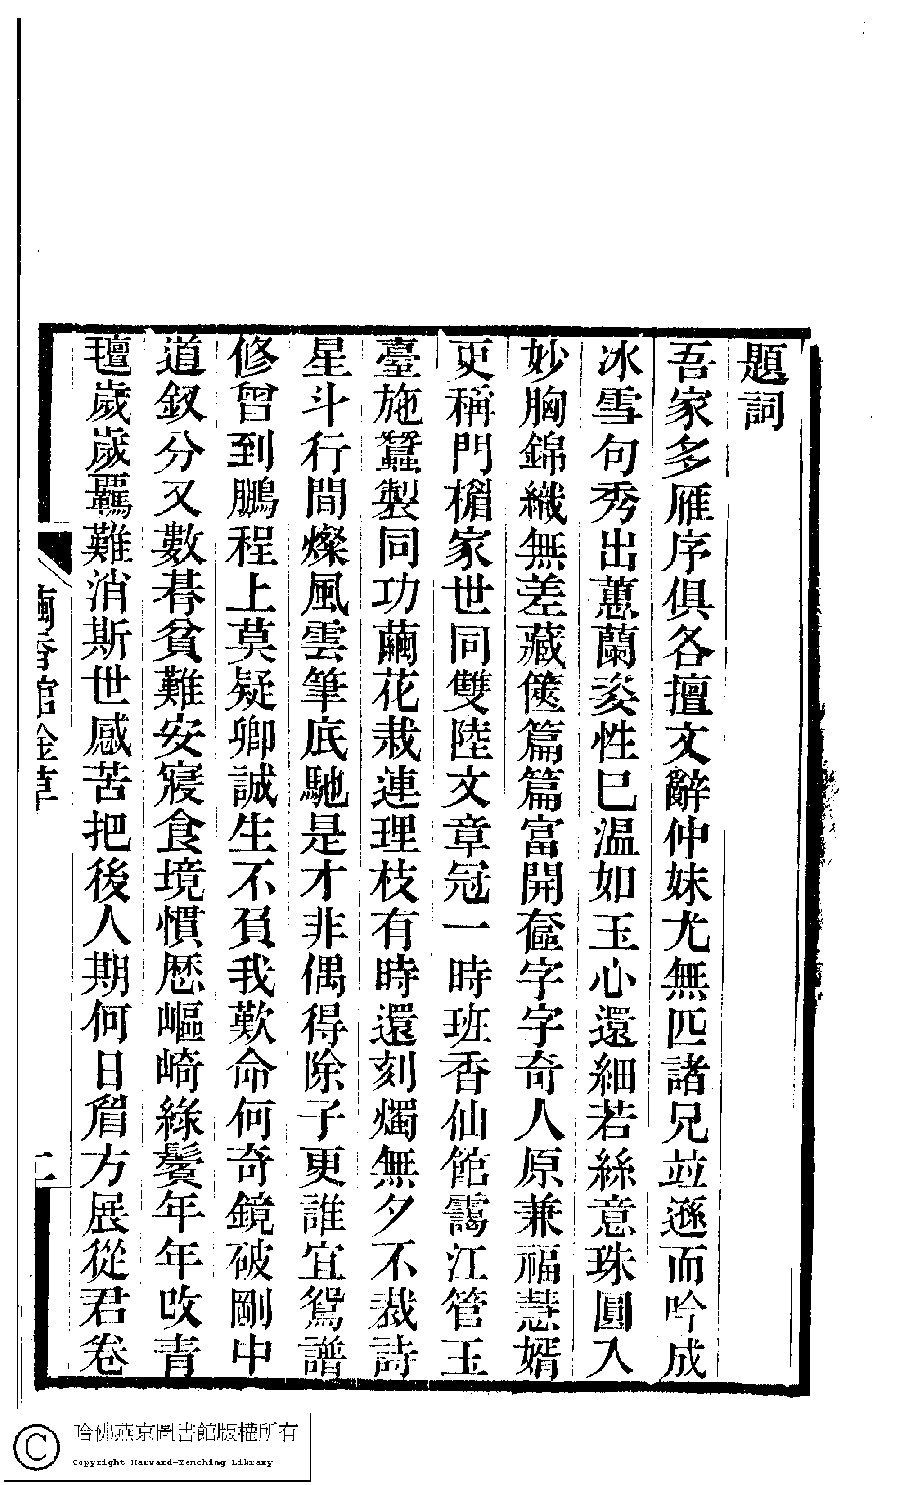 題詞
吾家多雁序俱各擅文辭仲妹尤無匹諸兄竝遜而吟成
冰雪句秀出蕙蘭姿性巳温如玉心還細若絲意珠圓入
妙胸錦織無差藏篋篇篇富開奩字字奇人原兼福慧婿
更稱門楣家世同雙陸文章冠一時班香仙館靄江管玉
臺施蠶製同功繭花栽連理枝有時還刻燭無夕不裁詩
星斗行間燦風雲筆底馳是才非偶得除子更誰宜鴛譜
修曾到鵬程上莫疑卿誠生不負我歎命何奇鏡破剛中
道釵分又數朞貧難安寢食境慣歷嶇崎綠鬢年年改青
氊歲歲羈難消斯世感苦把後人期何日眉方展從君卷
繭香館唫草
哈佛燕京圖書館版權所有
Copyright Harvard-Yenching Library